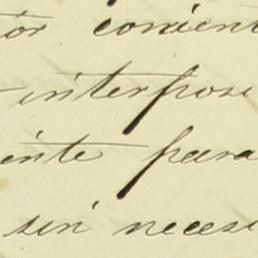 por convient
interpose
ente para
sin necesi